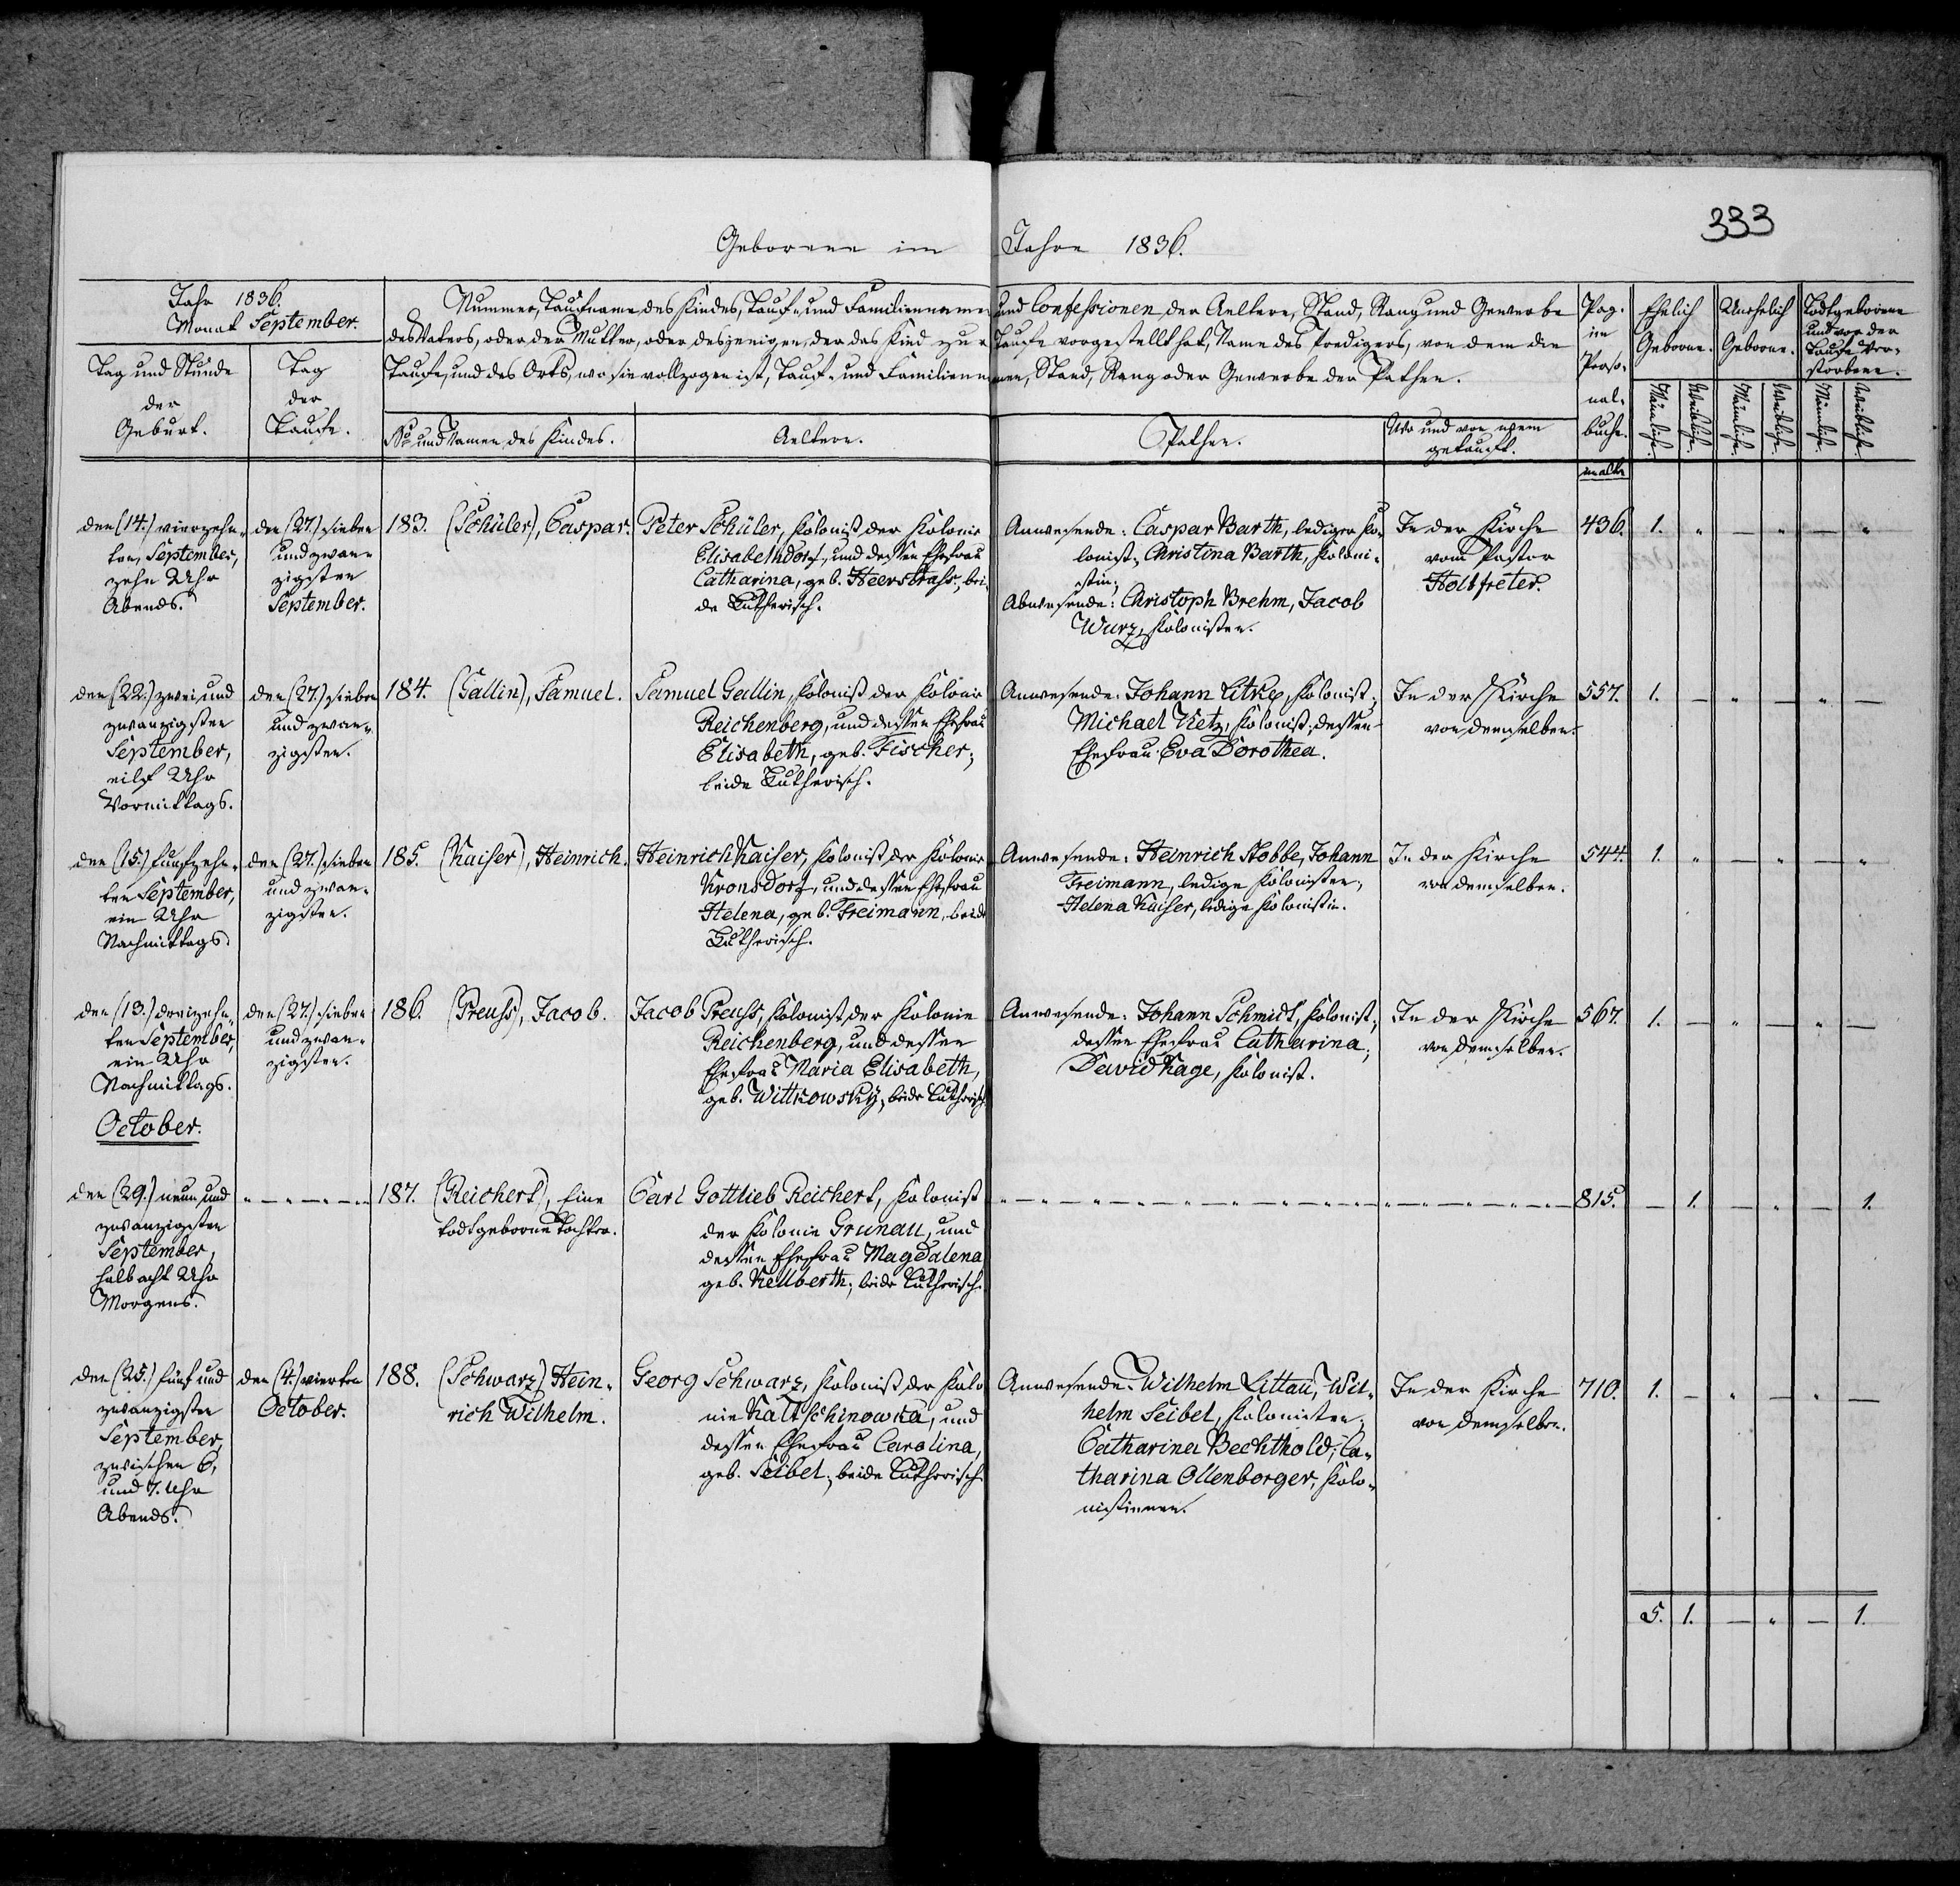 333
Geborene im Jahre 1836.
Jahr 1836.
Monat September.
Tag und Stunde
der
Geburt.
Tag
der
Taufe.
Nummer, Taufname des Kindes, Tauf- und Familiennamen und Confessionen der Aeltern, Stand, Rang und Gewerbe
des Vaters, oder der Mutter, oder desjenigen, der das Kind zur Taufe vorgestellt hat, Name des Predigers, von dem die
Taufe, und des Orts, wo sie vollzogen ist, Tauf- und Familiennamen, Stand, Rang oder Gewerbe der Pathen.
No und Namen des Kindes.
Aeltern.
Pathen.
Wo und von wem
getauft.
Pag.
im
Perso-
nal-
buche.
Ehelich
Geborne.
Unehelich
Geborne.
Todtgeborene
und vor der
Taufe Ver-
storbene.
Männliche.
Weibliche.
Männliche.
Weibliche.
Männliche.
Weibliche.
den (14.) vierzehn-
ten September,
zehn Uhr
Abends.
den (27.) sieben
und zwan-
zigsten
September.
183. (Schüler), Caspar.
Peter Schüler, Kolonist der Kolonie
Elisabethdorf, und dessen Ehefrau
Catharina, geb. Heerstrahs, bei-
de Lutherisch.
Anwesende: Caspar Barth, lediger Ko-
lonist; Christina Barth, Koloni-
stin;
Abwesende: Christoph Brehm, Jacob
Wurz, Kolonisten.
In der Kirche
vom Pastor
Holtfreter.
436. 1. " — " — "
den (22.) zwei und
zwanzigsten
September,
eilf Uhr
Vormittags.
den (27.) sieben
und zwan-
zigsten.
184. (Gallin), Samuel.
Samuel Gallin, Kolonist der Kolonie
Reichenberg, und dessen Ehefrau
Elisabeth, geb. Fischer;
beide Lutherisch.
Anwesende: Johann Litke, Kolonist;
Michael Ketz, Kolonist, dessen
Ehefrau Eva Dorothea.
In der Kirche
von demselben.
557. 1. — " — " —
den (15.) funfzehn-
ten September,
ein Uhr
Nachmittags.
den (27.) sieben
und zwan-
zigsten.
185. (Kaiser), Heinrich.
Heinrich Kaiser, Kolonist der Kolonie
Kronsdorf, und dessen Ehefrau
Helena, geb. Freimann, beide
Lutherisch.
Anwesende: Heinrich Stobbe, Johann
Freimann, ledige Kolonisten;
Helena Kaiser, ledige Kolonistin.
In der Kirche
von demselben.
544. 1. " — " — "
den (13.) dreizehn-
ten September,
ein Uhr
Nachmittags.
den (27.) sieben
und zwan-
zigsten.
186. (Preuss), Jacob.
Jacob Preuss, Kolonist der Kolonie
Reichenberg, und dessen
Ehefrau Maria Elisabeth,
geb. Wittkowsky; beide Lutherisch.
Anwesende: Johann Schmidt, Kolonist;
dessen Ehefrau Catharina;
David Kage, Kolonist.
In der Kirche
von demselben.
567. 1. — " — " —
October.
den (29.) neun und
zwanzigsten
September,
halb acht Uhr
Morgens.
187. (Reichert), Eine
todtgeborne Tochter.
Carl Gottlieb Reichert, Kolonist
der Kolonie Grunau, und
dessen Ehefrau Magdalena
geb. Kellberth; beide Lutherisch.
815. — 1. — " — 1.
den (25.) fünf und
zwanzigsten
September,
zwischen 6,
und 7. Uhr
Abends.
den (4.) vierten
October.
188. (Schwarz) Hein-
rich Wilhelm.
Georg Schwarz, Kolonist der Kolo
nie Kaltschinowka, und
dessen Ehefrau Carolina,
geb. Seibel; beide Lutherisch.
Anwesende: Wilhelm Littau, Wil-
helm Seibel, Kolonisten;
Catharina Bechthold, Ca-
tharina Ollenborger, Kolo-
nistinnen.
In der Kirche
von demselben.
710. 1. — " — " —
5. 1. — " — 1.